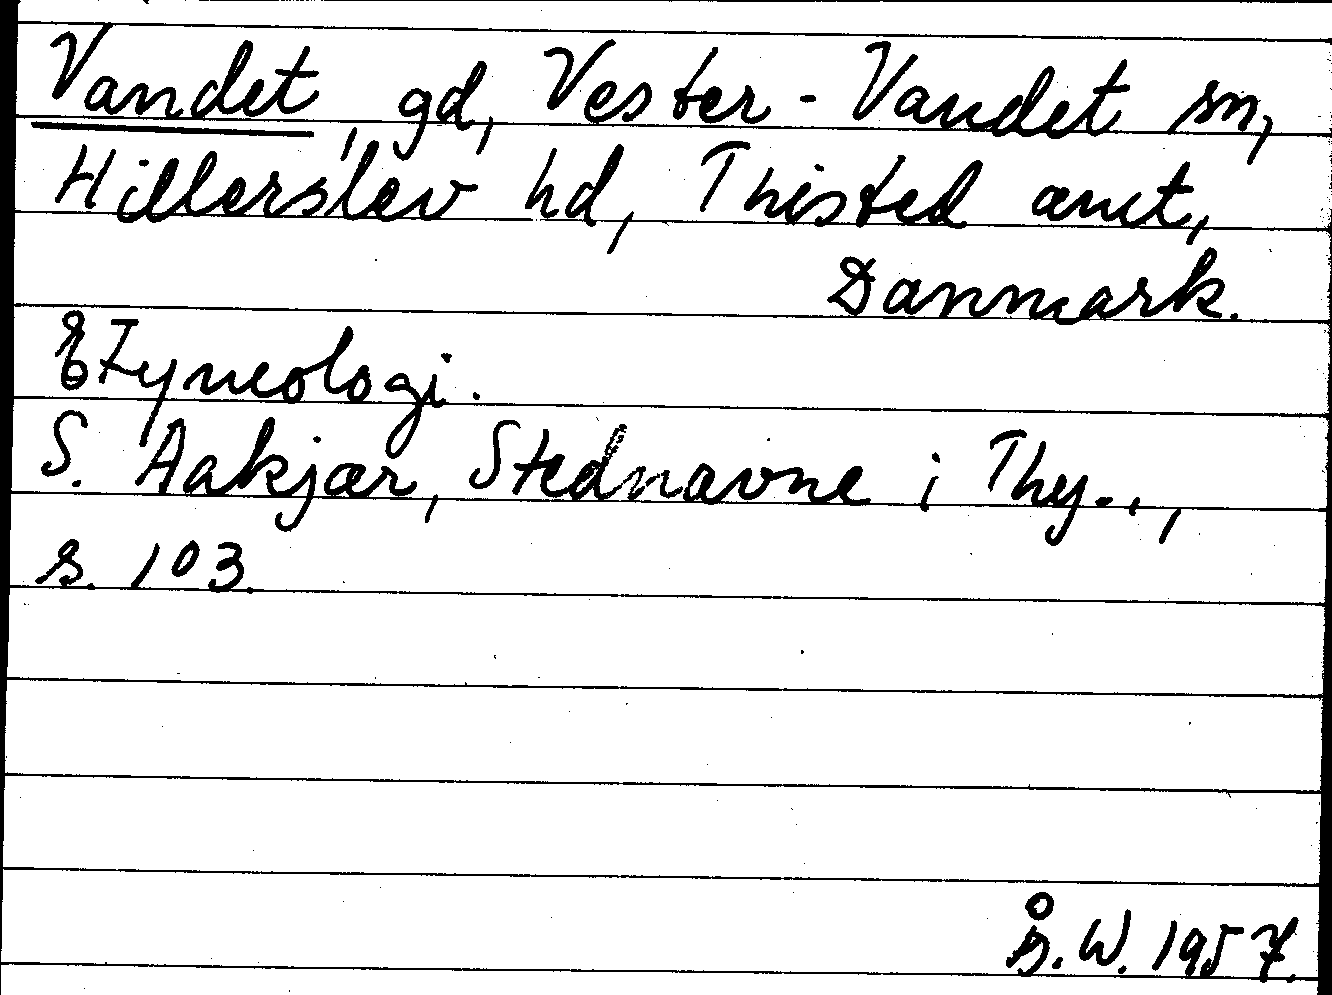 Vandet, gd, Vester-Vandet sn,
Hillerslev hd, Thisted amt,
Danmark.
Etymologi.
S. Aakjær, Stednavne i Thy..,
s. 103.
Å.W. 1957.